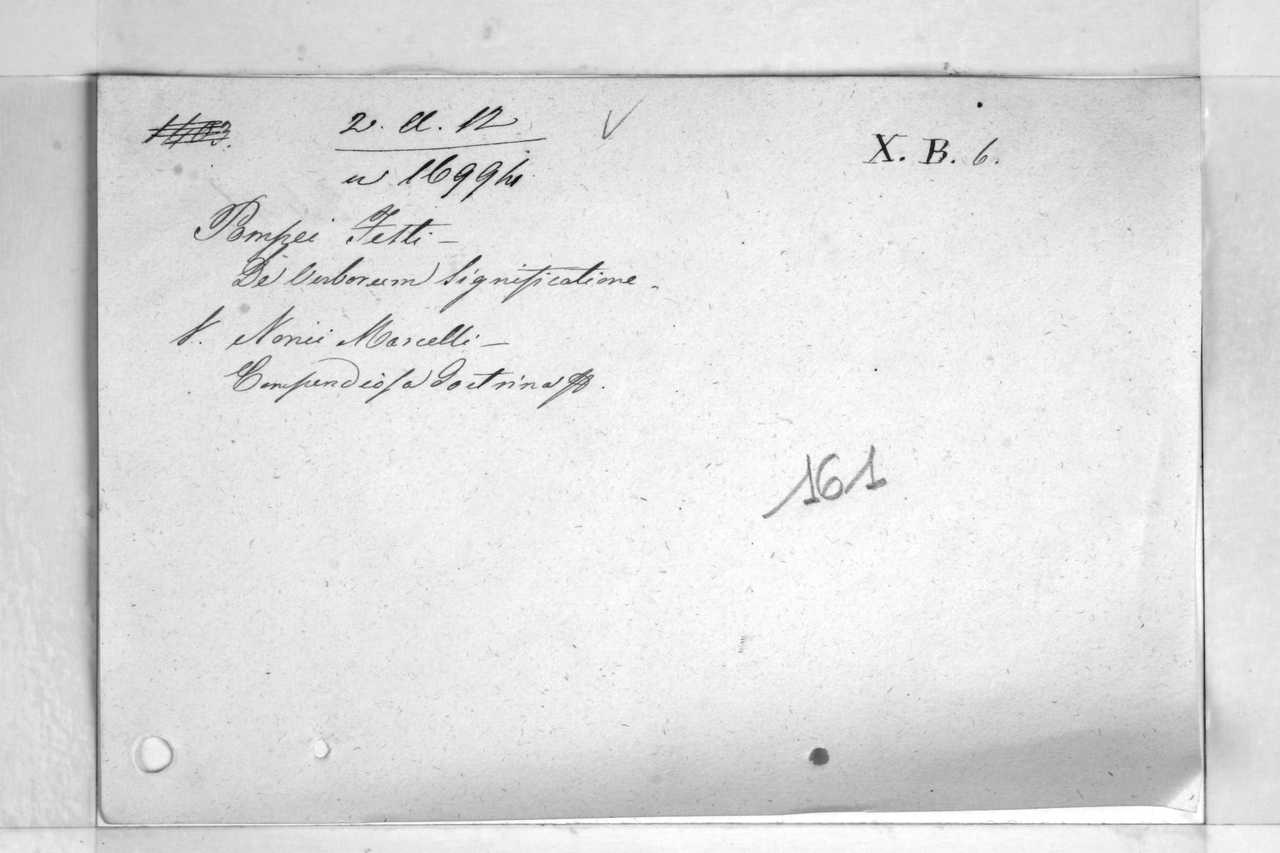 1403. 2. A. 12 √ X. B. 6.
u 1699/4
Pompei Festi —
De Verborum Significatione.
N. Nonii Marcelli —
Compendiosa doctrina
161